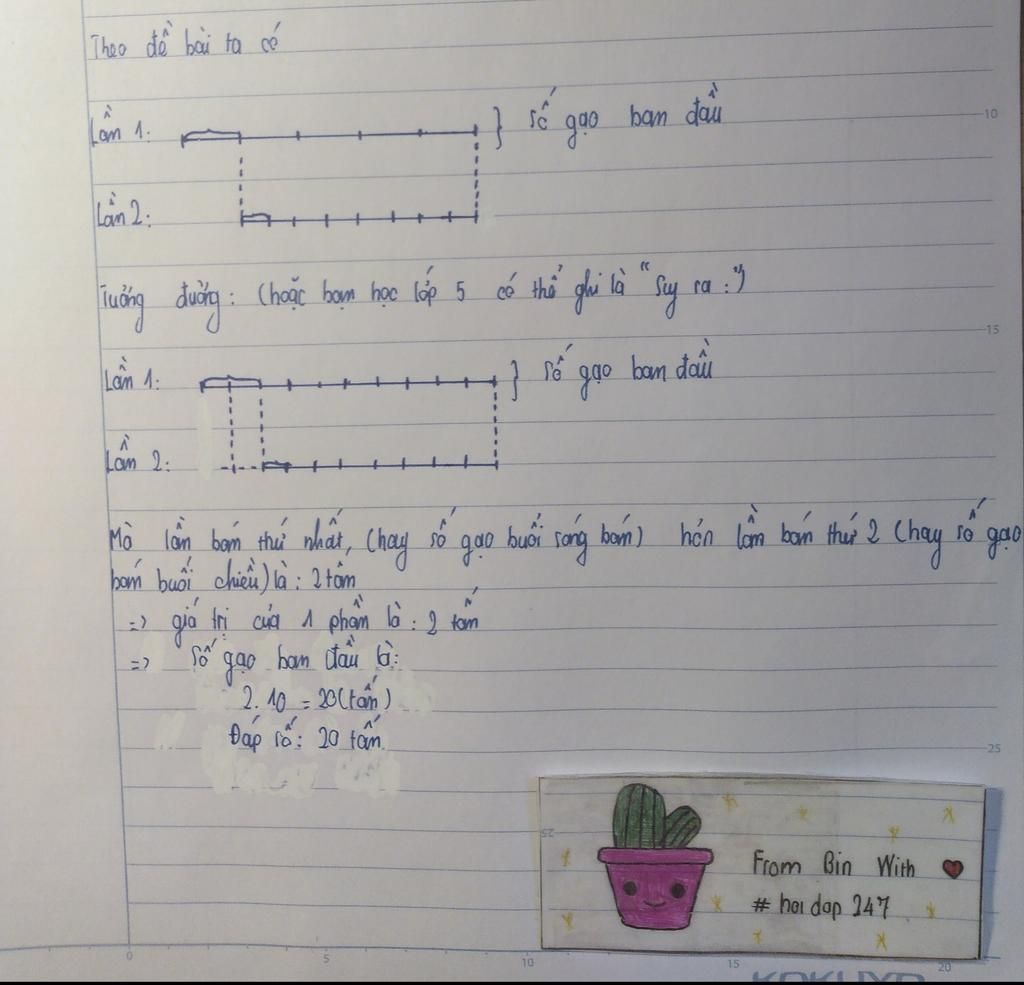 Theo đề bài ta có
Lần 1: } số gạo ban đầu
10
Lần 2:
Tương đương: (hoặc bạn học lớp 5 có thể ghi là "Suy ra:")
15
Lần 1: } số gạo ban đầu
Lần 2:
Mà lần bán thứ nhất, (hay số gạo buổi sáng bán) hơn lần bán thứ 2 (hay số gạo
bán buổi chiều) là: 2 tấn
=> giá trị của 1 phần là: 2 tấn
=> Số gạo ban đầu là:
2.10 = 20 (tấn)
Đáp số: 20 tấn
25
25
From Bin With ❤
# hoi dap 247
0 5 10 15 20
KOKUYO